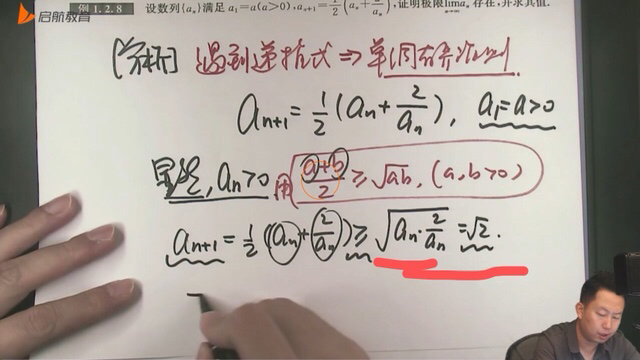 启航教育
例 1.2.8 设数列{aₙ}满足 a₁=a(a>0), aₙ₊₁=1/2(aₙ+2/aₙ), 证明极限 lim aₙ 存在, 并求其值.
n→∞
[分析] 遇到递推式 ⇒ 单调有界准则
aₙ₊₁=1/2(aₙ+2/aₙ), a₁=a>0
显然, aₙ>0 用 (a+b)/2 ≥ √ab, (a,b>0)
aₙ₊₁=1/2(aₙ+2/aₙ) ≥ √(aₙ·2/aₙ) =√2.